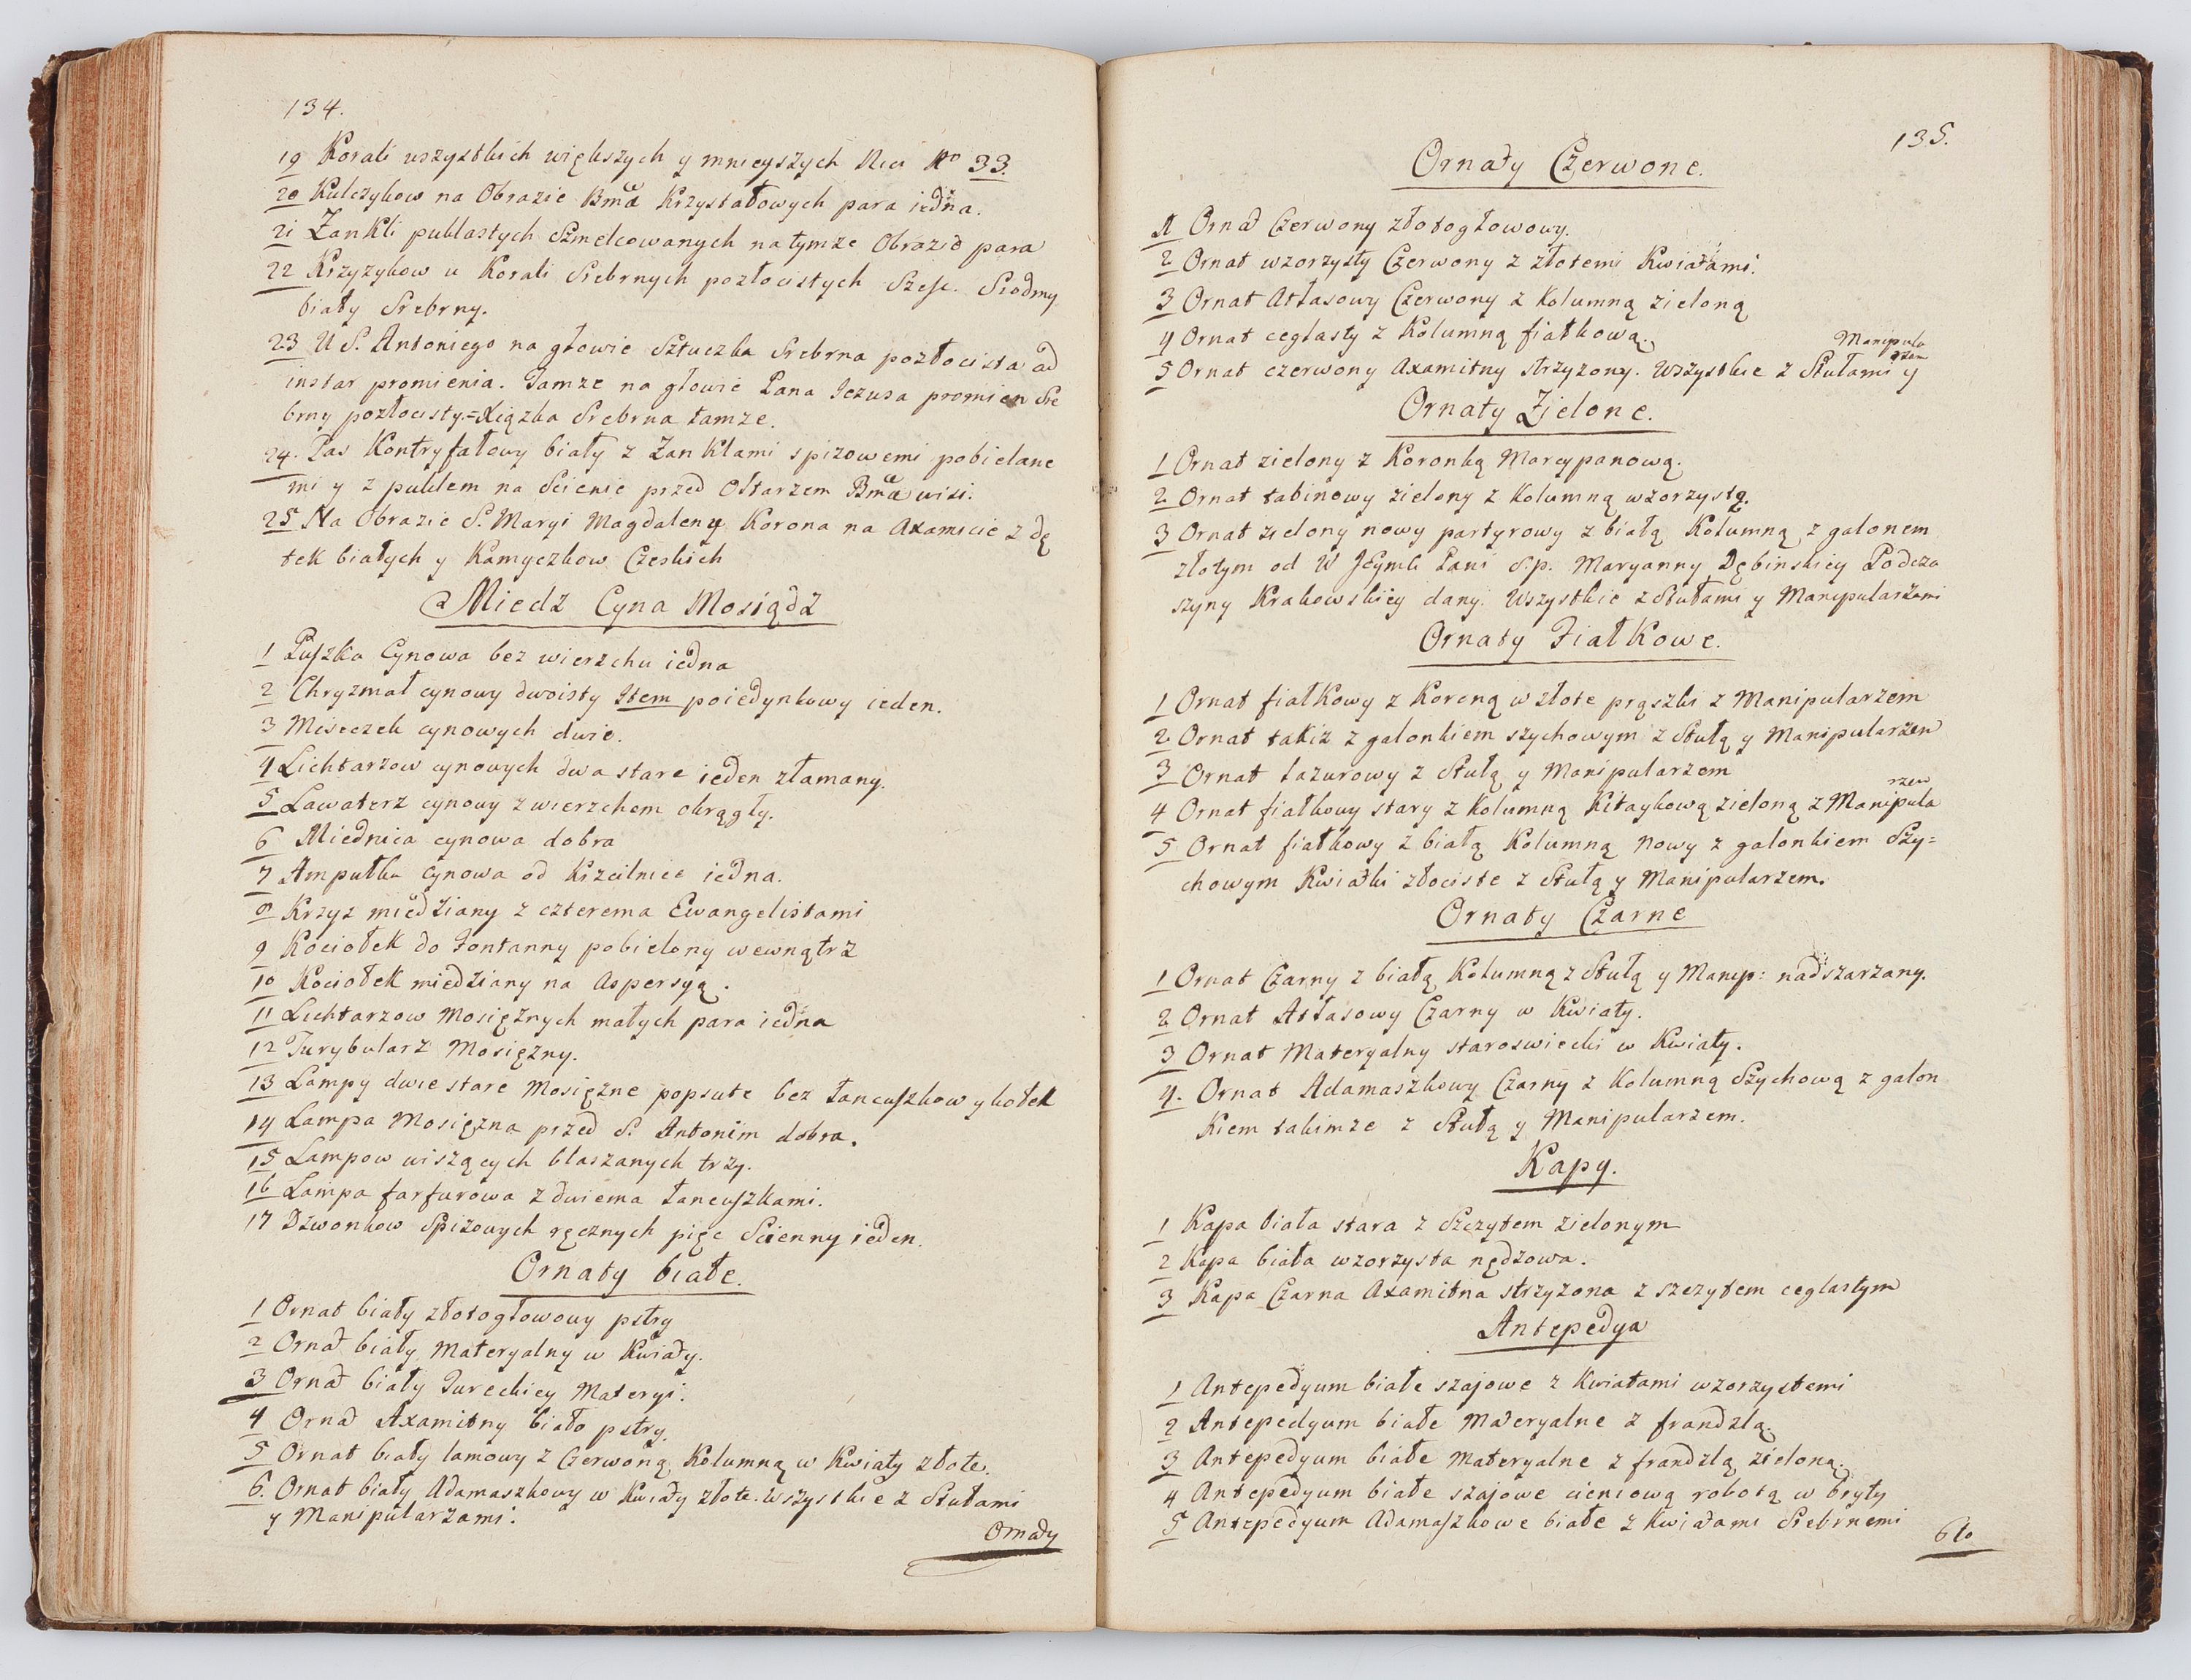 134.
19 Korali wszystkich większych y mnieyszych Nici No 33.
20 Kulczykow na Obrazie Bmæ Krzyształowych para iedna.
21 Zankli puklastych Szmelcowanych na tymze Obrazie para
22 Krzyzykow u Korali Srebrnych pozłocistych Szesc. Siodmy
biały Srebrny.
23 U S. Antoniego na głowie Sztuczka Srebrna pozłocista ad
instar promienia. Tamze na głowie Pana Jezusa promien Sre
brny pozłocisty.=Xiązka Srebrna tamze.
24. Pas Kontryfałowy biały z Zankłami spizowemi pobielane
mi y z puklem na Scienie przed Ołtarzem Bmæ wisi.
25 Na Obrazie S. Maryi Magdaleny Korona na Axamicie z dę
tek białych y Kamyczkow Czeskich
Miedz Cyna Mosiądz
1 Puszka Cynowa bez wierzchu iedna
2 Chryzmał cynowy dwoisty Item poiedynkowy ieden.
3 Miseczek cynowych dwie.
4 Lichtarzow cynowych dwa stare ieden złamany.
5 Lawaterz cynowy z wierzchem okrągły.
6 Miednica cynowa dobra
7 Ampułka Cynowa od Krzcilnice iedna.
8 Krzyz miedziany z czterema Ewangelistami
9 Kociołek do Fontanny pobielony wewnątrz
10 Kociołek miedziany na Aspersyą.
11 Lichtarzow Mosięznych małych para iedna
12 Turybularz Mosięzny.
13 Lampy dwie stare Mosięzne popsute bez łancuszkow y kołek
14 Lampa Mosięzna przed S. Antonim dobra.
15 Lampow wiszących blaszanych trzy.
16 Lampa farfurowa z dwiema łancuszkami.
17 Dzwonkow Spizowych ręcznych pięc Scienny ieden.
Ornaty białe.
1 Ornat biały złotogłowowy pstry
2 Ornat biały Materyalny w Kwiaty.
3 Ornat biały Tureckiey Materyi.
4 Ornat Axamitny biało pstry.
5 Ornat biały lamowy z Czerwoną Kolumną w Kwiaty złote.
6. Ornat biały Adamaszkowy w Kwiaty złote. Wszystkie z Stułami
y Manipularzami.
Ornaty
135.
Ornaty Czerwone.
1 Ornat Czerwony złotogłowowy.
2 Ornat wzorzysty Czerwony z złotemi Kwiatami.
3 Ornat Atłasowy Czerwony z Kolumną zieloną
4 Ornat ceglasty z Kolumną fiałkową.
Manipula
rzem
5 Ornat czerwony Axamitny strzyzony. Wszystkie z Stułami y
Ornaty Zielone.
1 Ornat zielony z Koronką Marcypanową.
2 Ornat tabinowy zielony z Kolumną wzorzystą.
3 Ornat zielony nowy partyrowy z białą Kolumną z galonem
złotym od W JEymći Pani S.p. Maryanny Dębinskiey Podcza
szyny Krakowskiey dany. Wszystkie z Stułami y Manipularzami
Ornaty Fiałkowe.
1 Ornat fiałkowy z Koroną w złote prąszki z Manipularzem
2 Ornat takiz z galonkiem szychowym z Stułą y Manipularzem
3 Ornat lazurowy z Stułą y Manipularzem
rzem
4 Ornat fiałkowy stary z Kolumną Kitaykową zieloną z Manipula
5 Ornat fiałkowy z białą Kolumną nowy z galonkiem Szy=
chowym Kwiatki złociste z Stułą y Manipularzem.
Ornaty Czarne
1 Ornat Czarny z białą Kolumną z Stułą y Manip: nadszarzany.
2 Ornat Atłasowy Czarny w Kwiaty.
3 Ornat Materyalny staroswiecki w Kwiaty.
4. Ornat Adamaszkowy Czarny z Kolumną Szychową z galon
Kiem takimze z Stułą y Manipularzem.
Kapy.
1 Kapa biała stara z Szczytem zielonym
2 Kapa biała wzorzysta nędzowa.
3 Kapa Czarna Axamitna strzyzona z szczytem ceglastym
Antepedya
1 Antepedyum białe szajowe z Kwiatami wzorzystemi
2 Antepedyum białe Materyalne z frandzlą.
3 Antepedyum białe Materyalne z frandzlą zieloną.
4 Antepedyum białe szajowe cieniową robotą w bryty
5 Antepedyum Adamaszkowe białe z Kwiatami Srebrnemi
6to